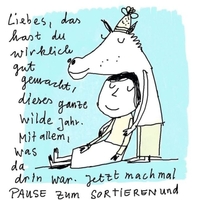 Liebes, das
hast du
wirklich
gut
gemacht,
dieses ganze
wilde Jahr.
Mit allem,
was
da
drin war. Jetzt mach mal
PAUSE zum SORTIEREN und